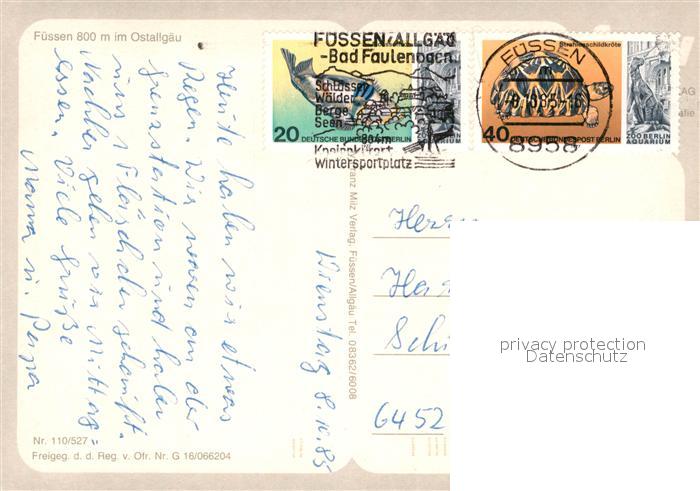 Füssen 800 m im Ostallgäu
Heute haben wir etwas
Regen. Wir waren an der
und haben
uns
Nachher gehen wir Mittag-
essen. Viele Grüße
Mama u. Papa
Dienstag 8.10.85
Nr. 110/527
Freigeg. d. d. Reg. v. Ofr. Nr. G 16/066204
Franz Milz Verlag, Füssen/Allgäu Tel. 08362/6008
FÜSSEN/ALLGÄU
-Bad Faulenbach
Schlösser
Wälder
Berge
Seen
Kneippkurort
Wintersportplatz
20
DEUTSCHE BUNDESPOST BERLIN
AQUARIUM
FÜSSEN
8958
Strahlenschildkröte
40
DEUTSCHE BUNDESPOST BERLIN
ZOO BERLIN
AQUARIUM
Herrn
6452
privacy protection
Datenschutz